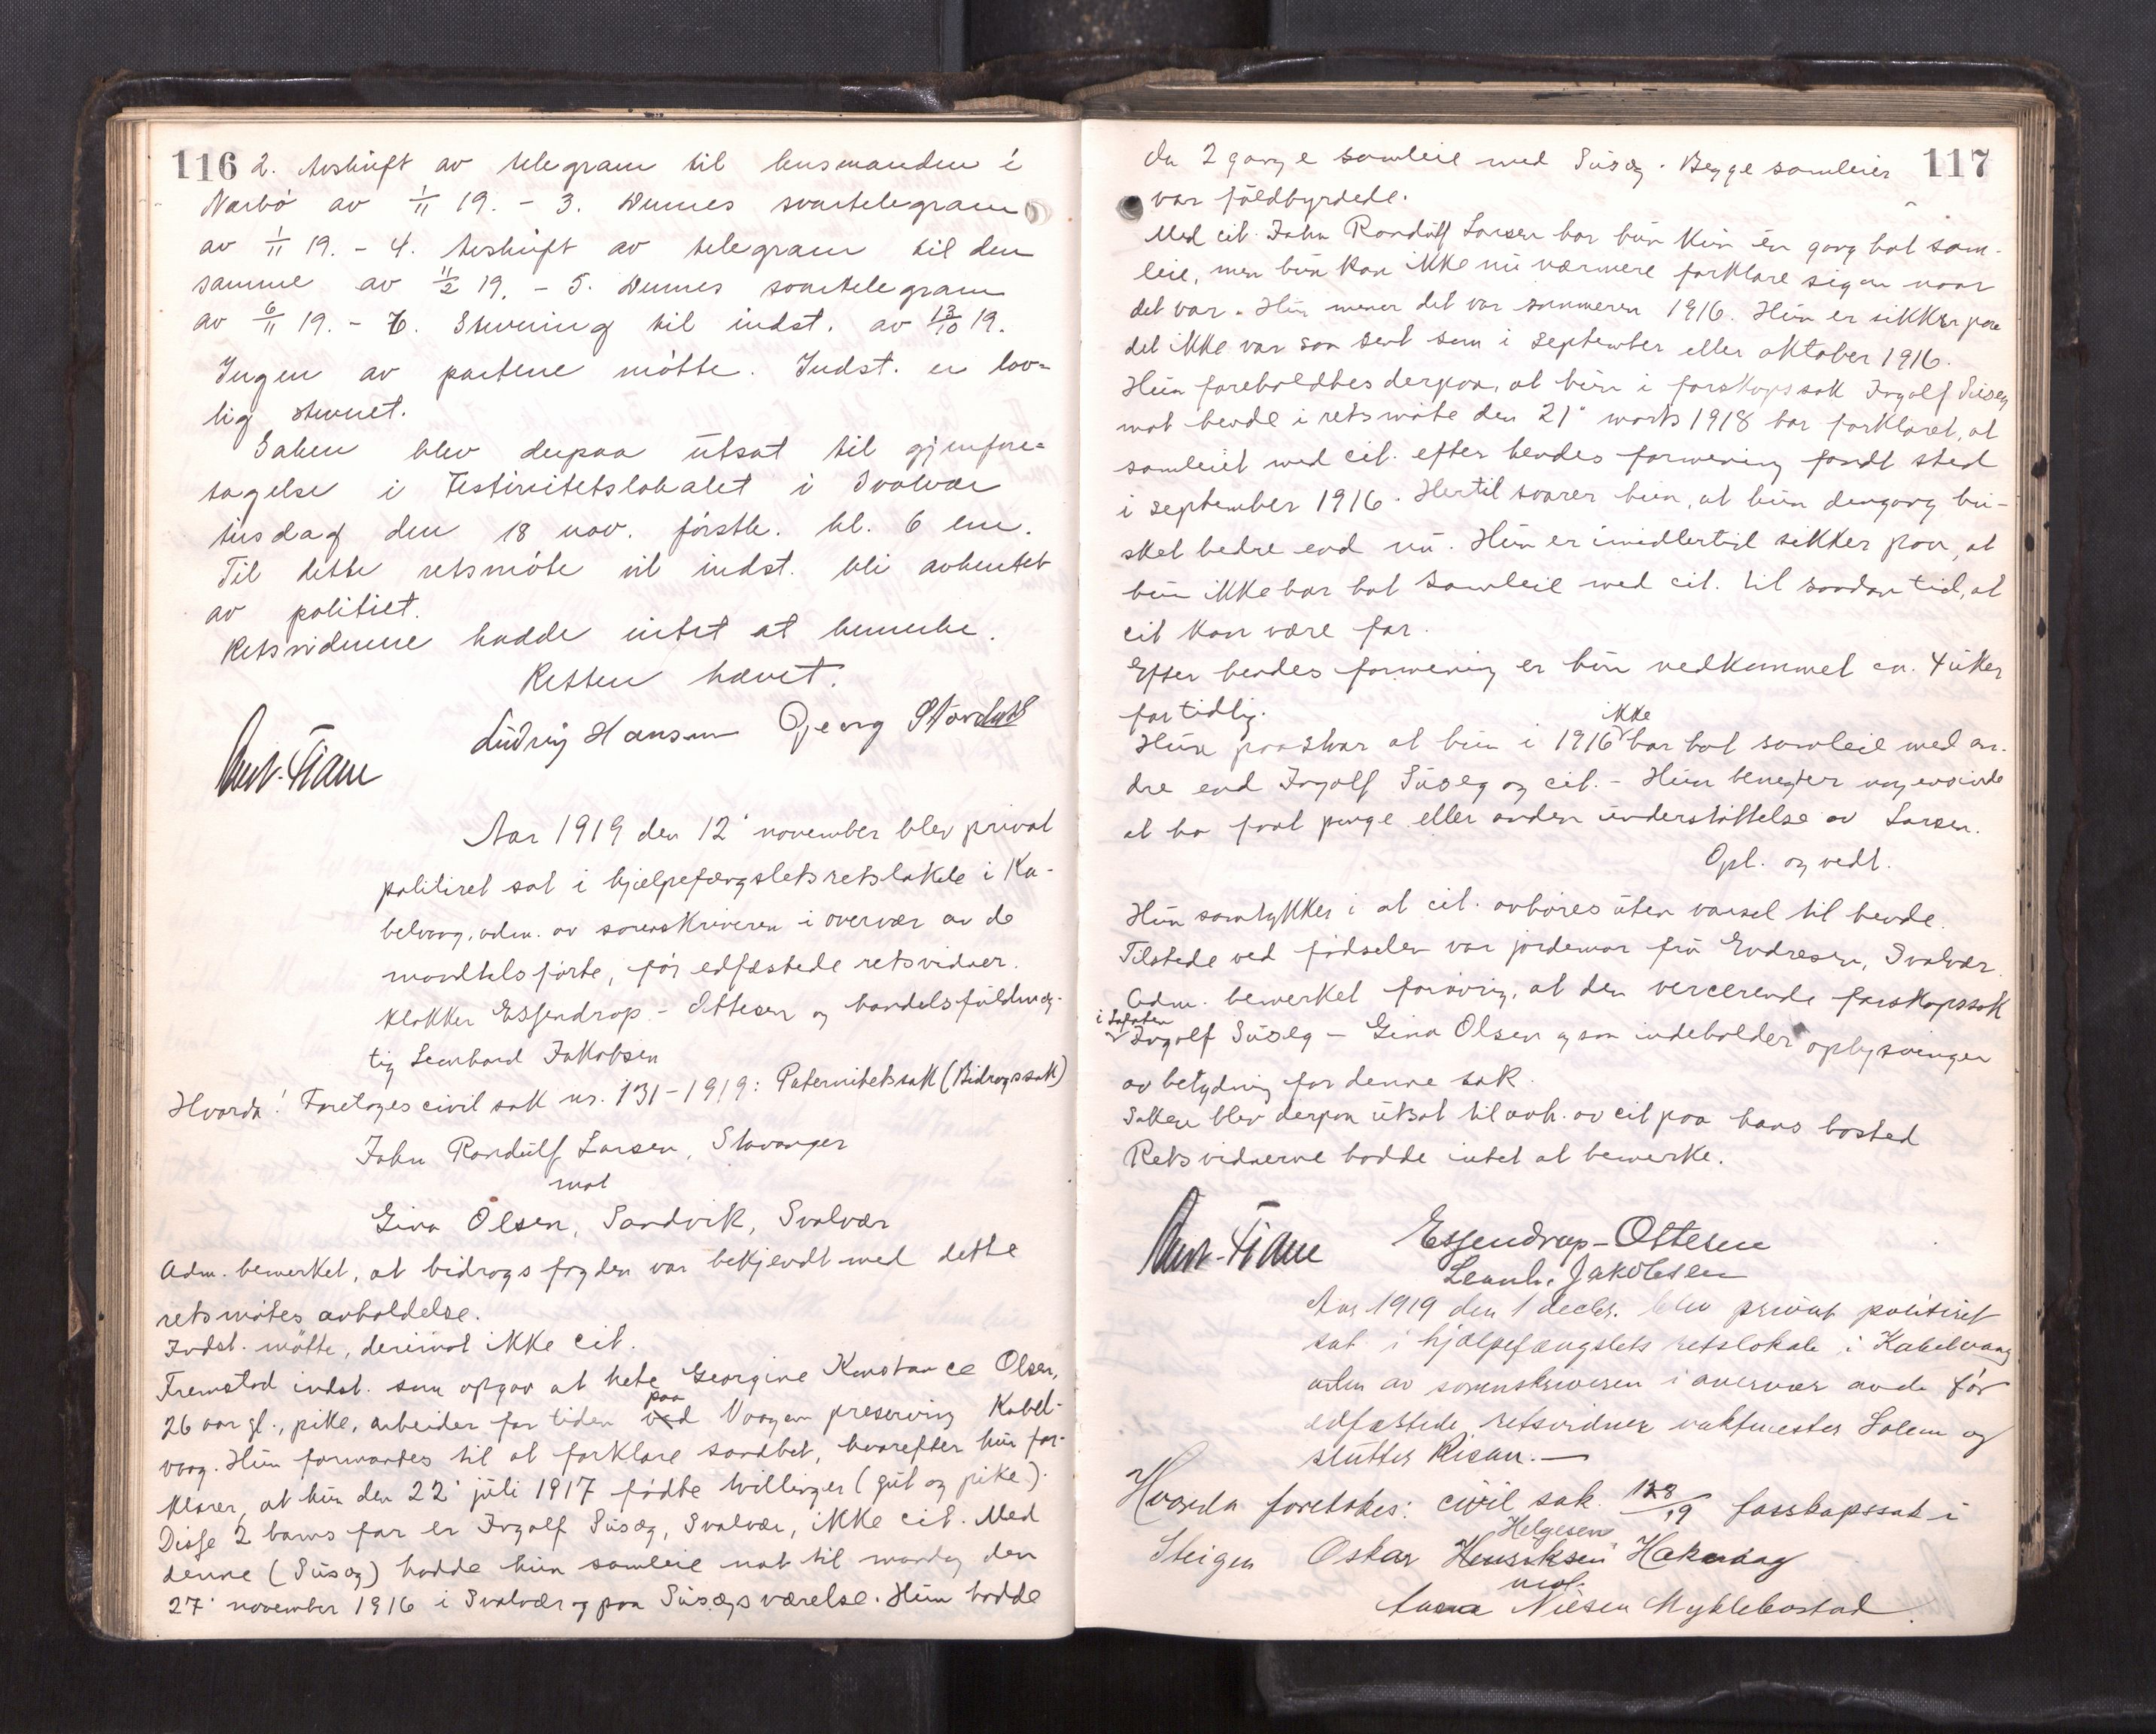 116 2. Avskrift av telegram til lensmanden i
Nærbø av 1/11 19. - 3. Dennes svartelegram
av 1/11 19. - 4. Avskrift av telegram til den
samme av 11/2 19. - 5. Dennes svartelegram
av 6/11 19. - 6. Stevning til indst. av 13/10 19.
Ingen av partene møtte. Indst. er lov-
lig stevnet.
Saken blev derpaa utsat til gjenfore-
tagelse i Festivitetslokalet i Svolvær
tirsdag den 18 nov. førstk. kl. 6 em.
Til dette retsmøte vil indst. bli avhentet
av politiet.
Retsvidnene hadde intet at bemerke.
Retten hævet.
Ludvig Hansen Georg Størdahl
Aar 1919 den 12' november blev privat
politiret sat i hjælpefængslets retslokale i Ka-
belvaag, adm. av sorenskriveren i overvær av de
mandtalsførte, før edfæstede retsvidner.
klokker Essendrop-Ottesen og handelsfuldmæg-
tig Leonhard Jakobsen
Hvorda! Foretoges civil sak nr. 131-1919: Paternitetssak (Bidragssak)
John Randulf Larsen, Stavanger
mot
Gina Olsen, Sandvik, Svolvær
Adm. bemerket, at bidragsfogden var bekjendt med dette
retsmøtes avholdelse.
Indst. møtte, derimot ikke cit.
Fremstod indst. som opgav at hete Georgine Konstance Olsen,
26 aar gl., pike, arbeider for tiden ved paa Vaagan preserving Kabel-
vaag. Hun formantes til at forklare sandhet, hvorefter hun for-
klarer, at hun den 22' juli 1917 fødte tvillinger (gut og pike).
Disse 2 barns far er Ingolf Susæg, Svolvær, ikke cit. Med
denne (Susæg) hadde hun samleie nat til mandag den
27' november 1916 i Svolvær og paa Susægs værelse. Hun hadde
117
da 2 gange samleie med Susæg. Begge samleier
var fuldbyrdede.
Med cit. John Randulf Larsen har hun kun én gang hat sam-
leie, men hun kan ikke nu nærmere forklare sig om naar
det var. Hun mener det var sommeren 1916. Hun er sikker paa
det ikke var saa sent som i september eller oktober 1916.
Hun foreholdtes derpaa, at hun i farskapssak Ingolf Susæg
mot hende i retsmøte den 21' marts 1918 har forklaret, at
samleiet med cit. efter hendes formening fandt sted
i september 1916. Hertil svarer hun, at hun dengang hu-
sket bedre end nu. Hun er imidlertid sikker paa, at
hun ikke har hat samleie med cit. til saadan tid, at
cit kan være far.
Efter hendes formening er hun nedkommet ca. 4 uker
for tidlig.
Hun paastaar at hun i 1916 ikke har hat samleie med an-
dre end Ingolf Susæg og cit. - Hun benegter nogensinde
at ha faat penge eller anden understøttelse av Larsen.
Opl. og vedt.
Hun samtykker i at cit. avhøres uten varsel til hende.
Tilstede ved fødselen var jordemor fru Endresen, Svolvær.
Adm. bemerket forøvrig, at den verserende farskapssak
i Lofoten Ingolf Susæg - Gina Olsen ogsaa indeholder oplysninger
av betydning for denne sak.
Saken blev derpaa utsat til avh. av cit paa hans bosted
Retsvidnerne hadde intet at bemerke.
Essendrop-Ottesen
Leonh. Jakobsen
Aar 1919 den 1 decbr. blev privat politiret
sat i hjælpefængslets retslokale i Kabelvaag
adm av sorenskriveren i overvær av de før
edfæstede retsvidner vaktmester Solem og
slutter Risan.-
Hvorda foretokes: civil sak 128/19 farskapssak i
Steigen Oskar Henriksen Helgesen Hakvaag
mot
Anna Nilsen Myklebostad.